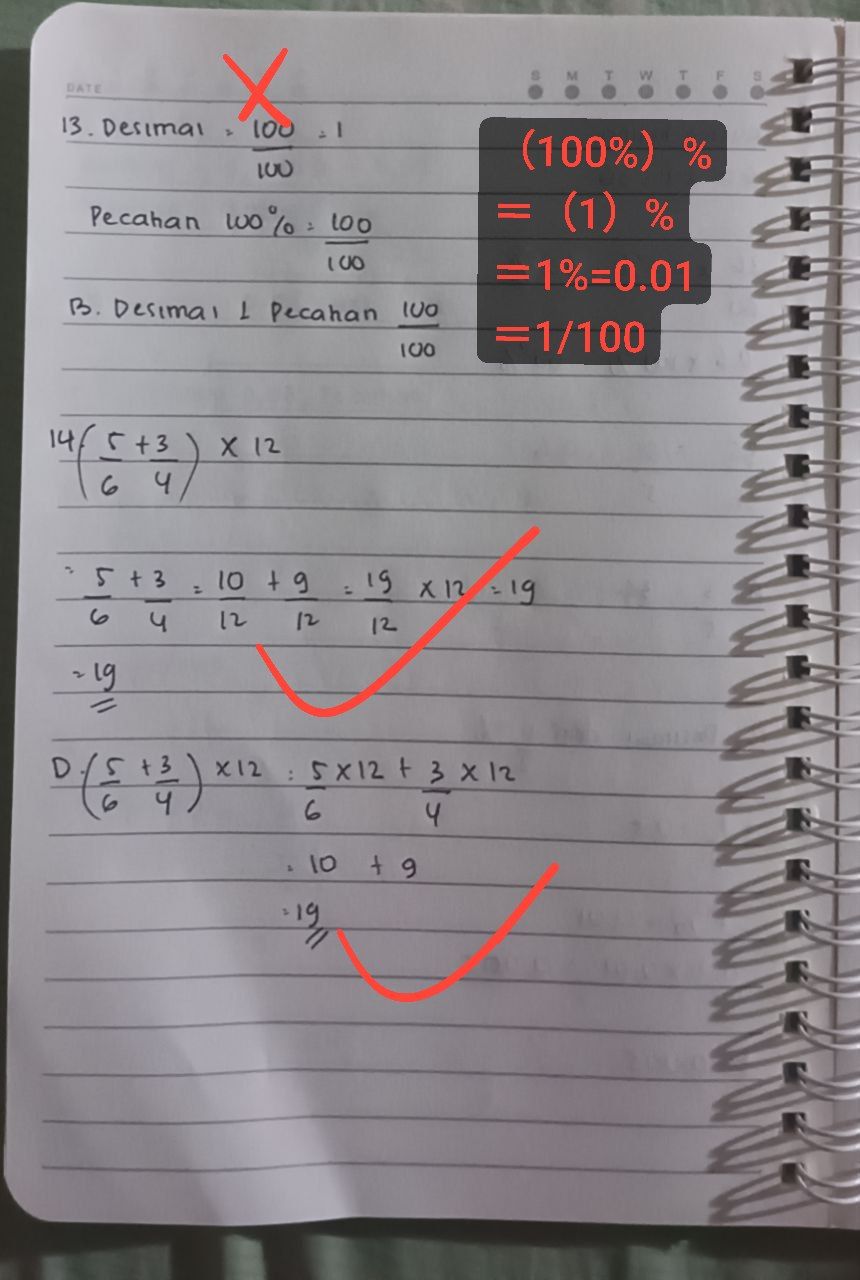 DATE
S M T W T F S
13. Desimal = 100/100 = 1
Pecahan 100% = 100/100
B. Desimal 1 Pecahan 100/100
（100%）%
＝（1）%
＝1%=0.01
＝1/100
14 (5/6 + 3/4) × 12
= 5/6 + 3/4 = 10/12 + 9/12 = 19/12 × 12 = 19
= 19
D. (5/6 + 3/4) × 12 = 5/6 × 12 + 3/4 × 12
= 10 + 9
= 19